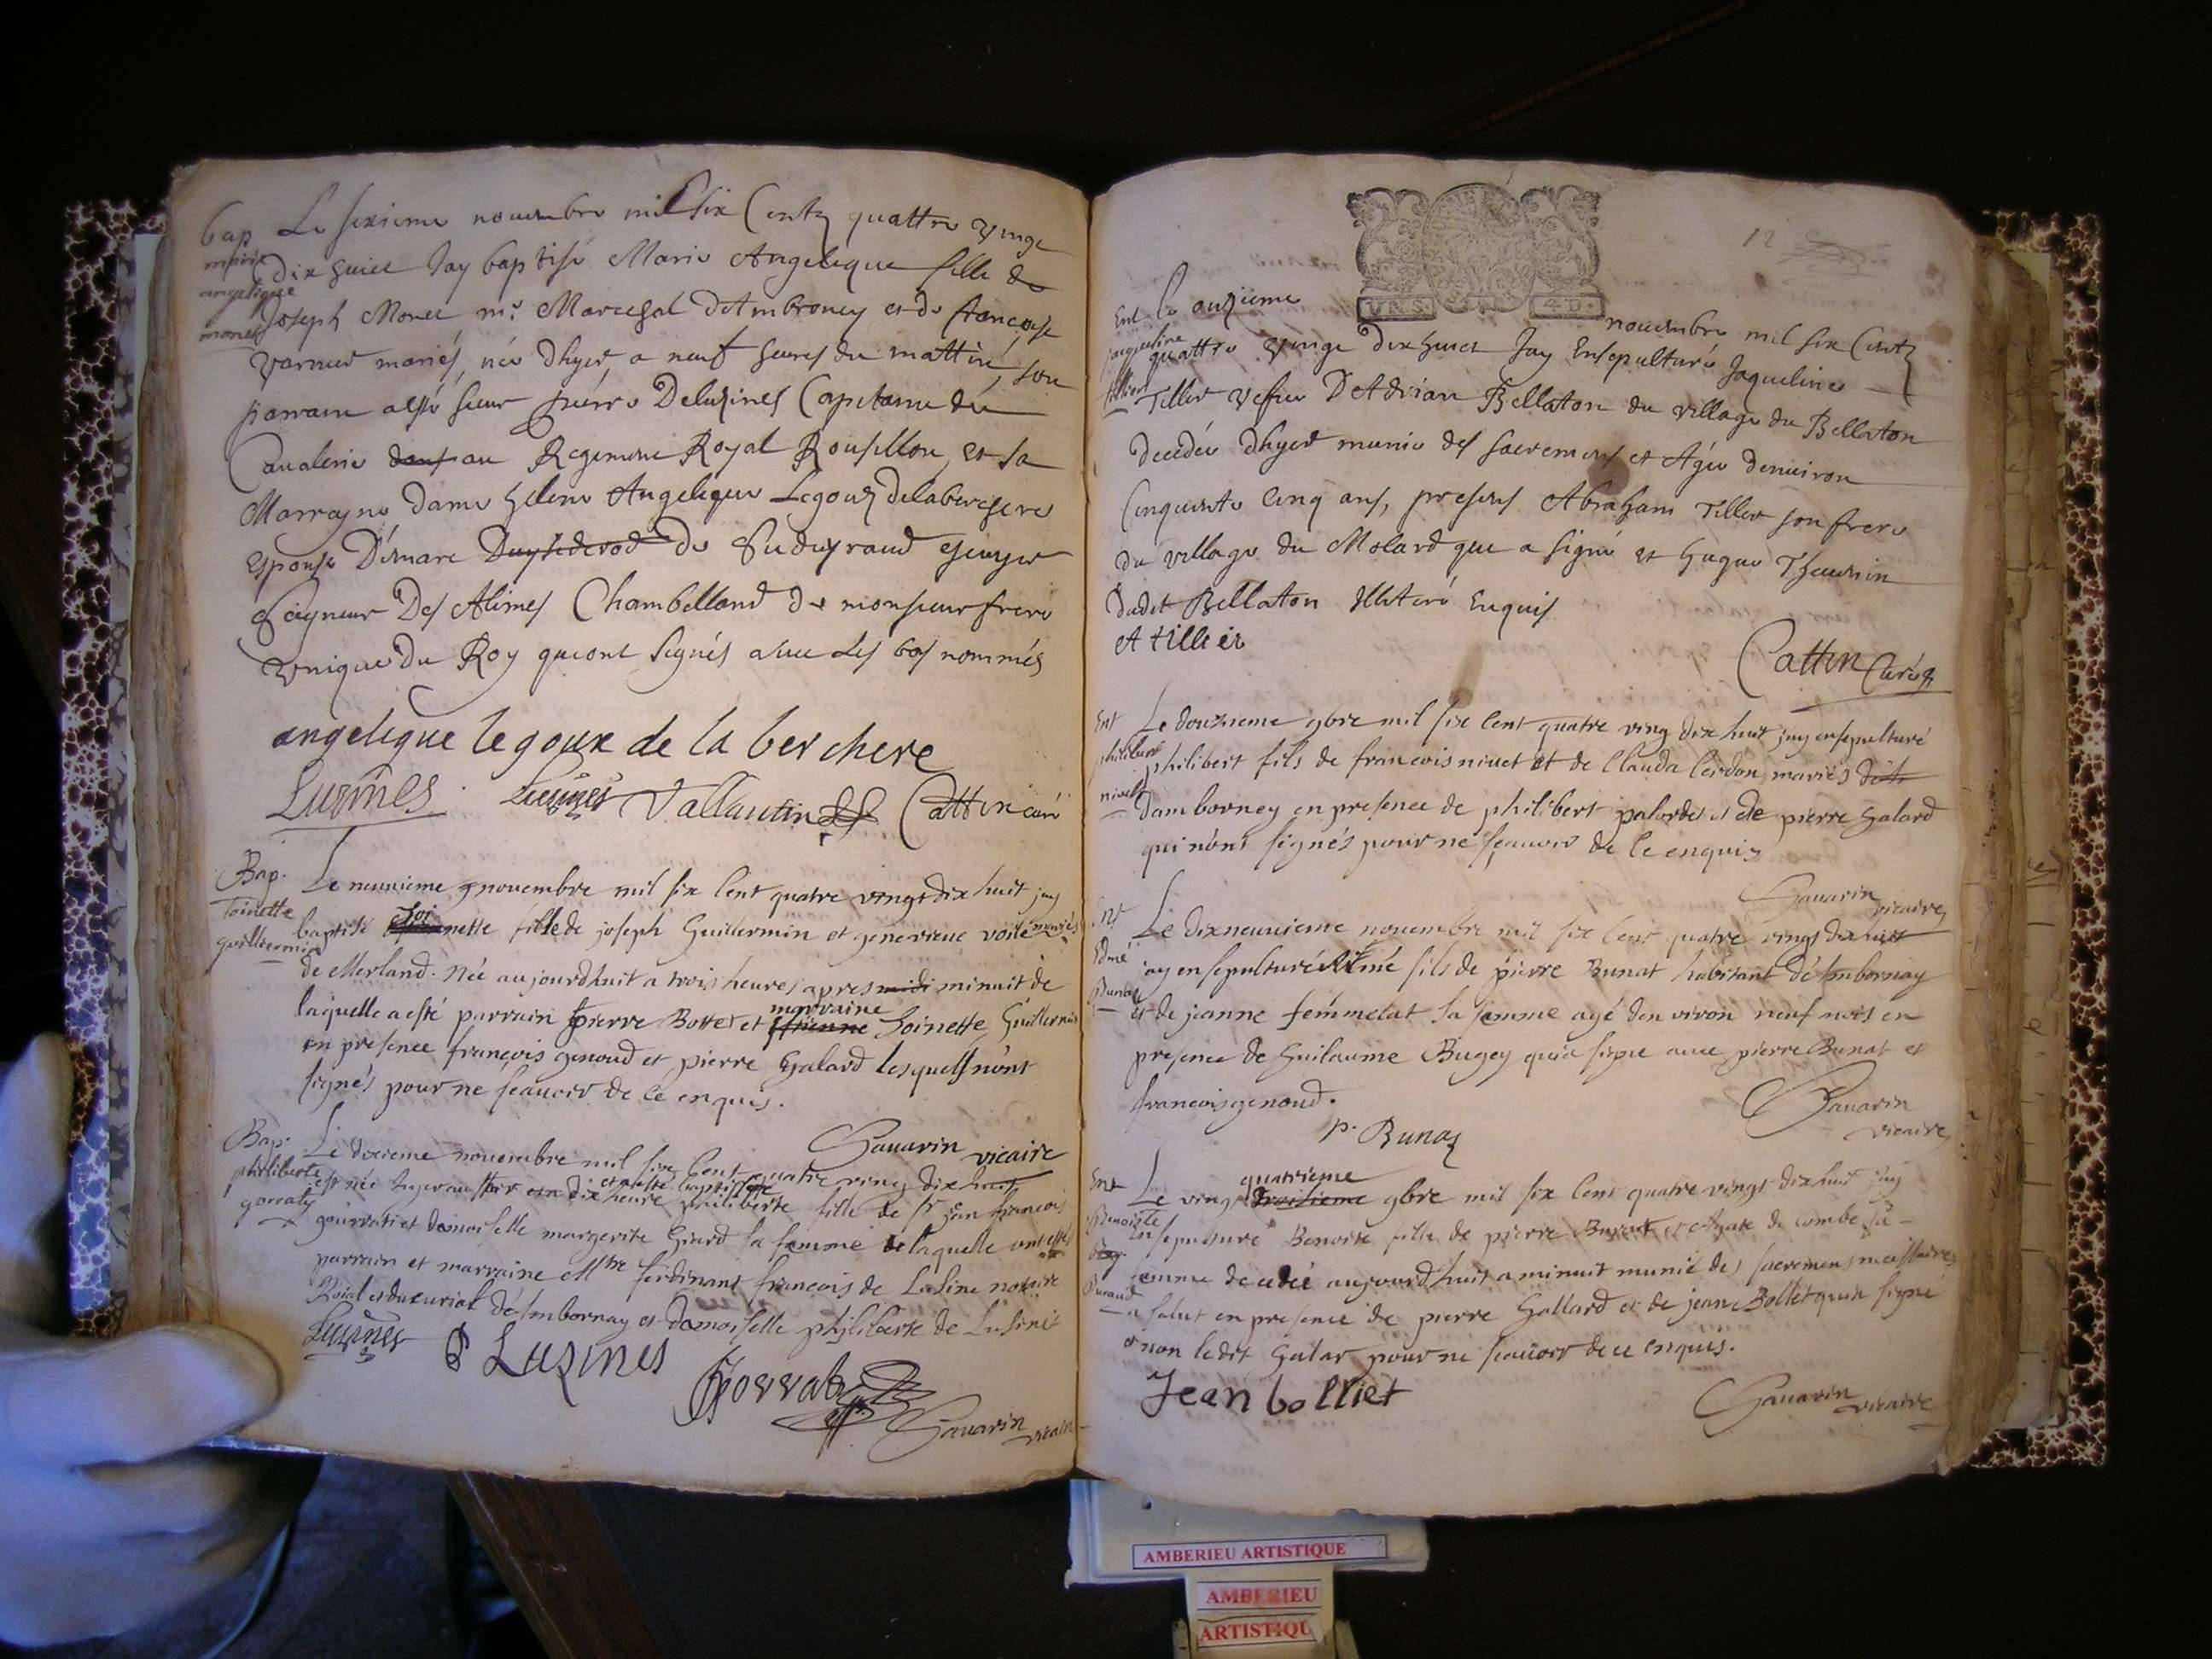 bap
marie
angelique
monet
Le sixieme novembre mil six Centz quattre vingt
dix huict Jay baptisé Marie Angelique fille de
Joseph Monet me. Marechal d'Ambroney et de françoise
Varnier mariés, née dhyer, a neuf heures du mattin, son
parrain a esté sieur pierre Deluzines Capitaine de
Cavalerie dans au Regiment Royal Rousillon, et sa
Marrayne dame helene Angelique Legouz delaberchere
Espouse Démare
seigneur Des Alimes Chambelland de monsieur frere
Unique du Roy qui ont signés avec les bas nommés
angelique legoux de la berchere
Luzines Luzines Vallantin Cattin curé
Bap.
Toinette
guillermin
Le neuvieme novembre mil six cent quatre vingt dix huit jay
baptisé Toinette fille de joseph Guillermin et genevieve voilé mariés
de Merland. Née aujourdhuit a trois heures apres midi minuit de
laquelle a esté parrain pierre Bottet et marraine Toinette Guillermin
en presence françois genoud et pierre Galard lesquels n'ont
signés pour ne sçavoir de ce enquis.
Savarin vicaire
Bap.
philiberte
gorraty
Le dixieme novembre mil six cent quatre ving dix huit
est née et a esté baptisée philiberte fille de sr jean françois
gourrati et damoiselle margerite Girard sa femme de laquelle ont estés
parrain et marraine Mtre ferdinant francois de Lusine notaire
Roial et ducurial d'Ambornay et damoiselle philiberte de Lusine
Luzines P Luzines
Gorraty
Savarin vicaire
12
4 D.
Ent
jaqueline
tillier
Le onzieme novembre mil six Centz
quattre vingt dix huict Jay Ensepulturé Jaqueline
Tillet vefve D'Adrian Bellaton du village du Bellaton
decedée dhyer munie des sacremens et Agée denviron
Cinquante Cinq ans, presens Abraham Tillet son frere
du village du Molard qui a signé et hugue Theurin
dudit Bellaton Illiteré Enquis
A tillier
Cattin Curé
Ent
philibert
nivet
Le douzieme 9bre mil six cent quatre ving dix huit jay ensepulturé
philibert fils de francois nivet et de Clauda Cerdon mariés
damborney en presence de philibert palordet et de pierre Galard
qui n'ont signés pour ne sçavoir de ce enquis
Savarin vicaire
Ent
Edmé
Bunat
Le dixneuvieme novembre mil six cent quatre vings dix huit
jay ensepulturé Edmé fils de pierre Bunat habitant d'Ambornay
et de jeanne femmelat sa femme agé denviron neuf mois en
presence de Guilaume Bugey qui a signé avec pierre Bunat et
francois genoud.
Savarin
vicaire
p. Bunaz
Ent
Benoiste
Le vingt troisieme quatrieme 9bre mil six cent quatre vings dix huit j'ay
Ensepulturé Benoite fille de pierre et Agate de combe sa
femme decedée aujourdhuit a minuit munie des sacremens necessaires
a salut en presence de pierre Gallard et de jean Bolliet qui a signé
et non ledit Galar pour ne sçavoir de ce enquis.
Jean bolliet
Savarin vicaire
AMBERIEU ARTISTIQUE
AMBERIEU
ARTISTIQU